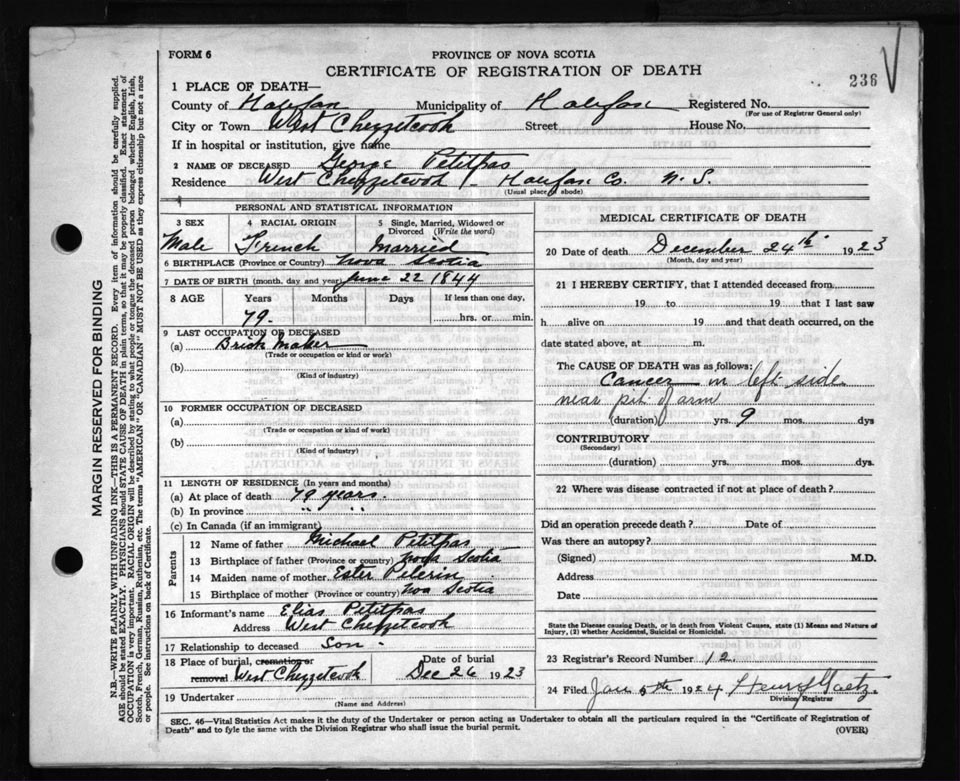 FORM 6
PROVINCE OF NOVA SCOTIA
CERTIFICATE OF REGISTRATION OF DEATH
236
1 PLACE OF DEATH—
County of Halifax Municipality of Halifax Registered No.
(For use of Registrar General only)
City or Town West Chezzetcook Street House No.
If in hospital or institution, give name
2 NAME OF DECEASED George Petitpas
Residence West Chezzetcook Halifax Co. N. S.
(Usual place of abode)
PERSONAL AND STATISTICAL INFORMATION
3 SEX 4 RACIAL ORIGIN 5 Single, Married, Widowed or Divorced (Write the word)
Male French Married
6 BIRTHPLACE (Province or Country) Nova Scotia
7 DATE OF BIRTH (month, day and year) June 22 1844
8 AGE Years Months Days If less than one day,
79 hrs. or min.
9 LAST OCCUPATION OF DECEASED
(a) Brick Maker
(Trade or occupation or kind or work)
(b)
(Kind of industry)
10 FORMER OCCUPATION OF DECEASED
(a)
(Trade or occupation or kind or work)
(b)
(Kind of industry)
11 LENGTH OF RESIDENCE (In years and months)
(a) At place of death 79 years.
(b) In province " "
(c) In Canada (if an immigrant)
Parents
12 Name of father Michael Petitpas
13 Birthplace of father (Province or country) Nova Scotia
14 Maiden name of mother Ester Pelerin
15 Birthplace of mother (Province or country) Nova Scotia
16 Informant's name Elias Petitpas
Address West Chezzetcook
17 Relationship to deceased Son
18 Place of burial, cremation or Date of burial
removal West Chezzetcook Dec 26 1923
19 Undertaker
(Name and Address)
MEDICAL CERTIFICATE OF DEATH
20 Date of death December 24th 1923
(Month, day and year)
21 I HEREBY CERTIFY, that I attended deceased from
19 to 19 that I last saw
h alive on 19 and that death occurred, on
date stated above, at m.
The CAUSE OF DEATH was as follows:
Cancer in left side
near pit of arm
(duration) yrs. 9 mos. dys
CONTRIBUTORY
(Secondary)
(duration) yrs. mos. dys.
22 Where was disease contracted if not at place of death?
Did an operation precede death? Date of
Was there an autopsy?
(Signed) M.D.
Address
Date
State the Disease causing Death, or in death from Violent Causes, state (1) Means and Nature of
Injury, (2) whether Accidental, Suicidal or Homicidal.
23 Registrar's Record Number 12.
24 Filed Jan 5th 1924
Division Registrar
SEC. 46—Vital Statistics Act makes it the duty of the Undertaker or person acting as Undertaker to obtain all the particulars required in the "Certificate of Registration of
Death" and to fyle the same with the Division Registrar who shall issue the burial permit.
(OVER)
MARGIN RESERVED FOR BINDING
N.B.—WRITE PLAINLY WITH UNFADING INK—THIS IS A PERMANENT RECORD. Every item of information should be carefully supplied.
AGE should be stated EXACTLY. PHYSICIANS should STATE CAUSE OF DEATH in plain terms, so that it may be properly classified. Exact statement of
OCCUPATION is very important. RACIAL ORIGIN will be described by stating to what people or tongue the deceased person belonged whether English, Irish,
Scotch, French, German, Russian, Ruthenian, etc. The terms "AMERICAN" OR "CANADIAN" MUST NOT BE USED as they express citizenship but not a race
or people. See instructions on back of Certificate.